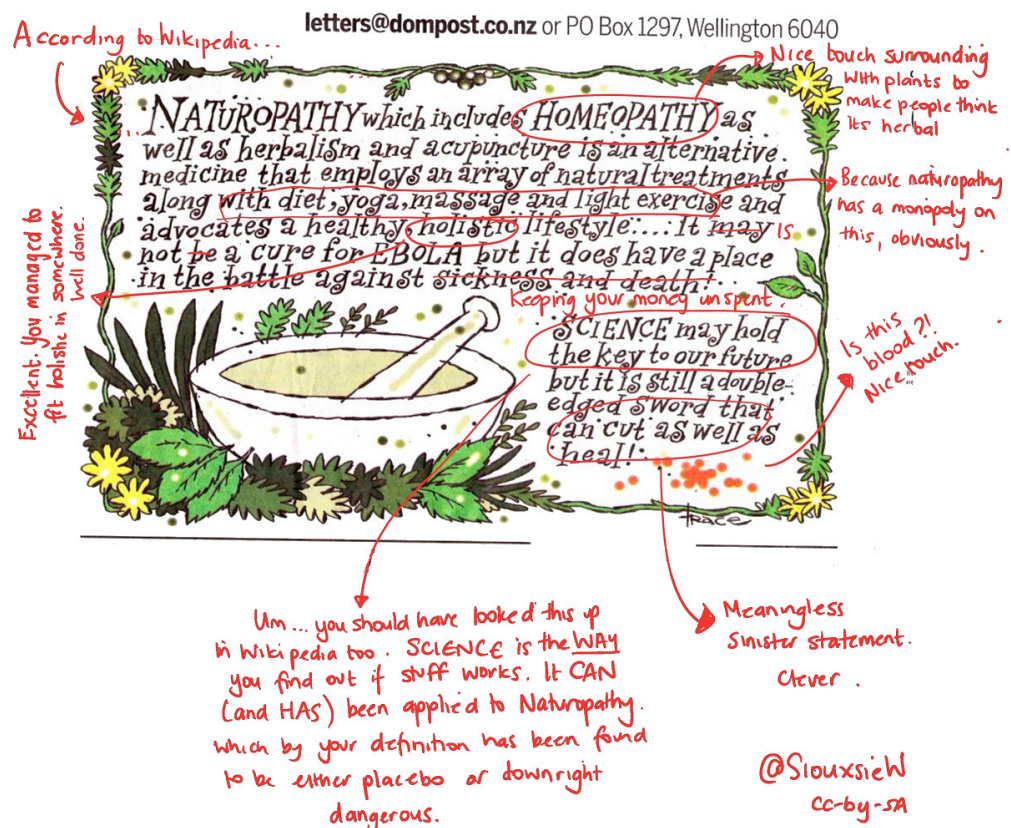 letters@dompost.co.nz or PO Box 1297, Wellington 6040
According to Wikipedia...
Nice touch surrounding
with plants to
make people think
its herbal
...NATUROPATHY which includes HOMEOPATHY as
well as herbalism and acupuncture is an alternative
medicine that employs an array of natural treatments
along with diet, yoga, massage and light exercise and
advocates a healthy, holistic lifestyle:...: It may IS
not be a cure for EBOLA but it does have a place
in the battle against sickness and death!
Keeping your money unspent.
Because naturopathy
has a monopoly on
this, obviously.
Excellent. You managed to
fit holistic in somewhere.
Well done.
SCIENCE may hold
the key to our future
but it is still a double-
edged sword that
can cut as well as
heal!
Is this
blood?!
Nice touch.
Trace
Um... you should have looked this up
in Wikipedia too. SCIENCE is the WAY
you find out if stuff works. It CAN
(and HAS) been applied to Naturopathy.
which by your definition has been found
to be either placebo or downright
dangerous.
Meaningless
Sinister statement.
Clever.
@SiouxsieW
CC-by-SA